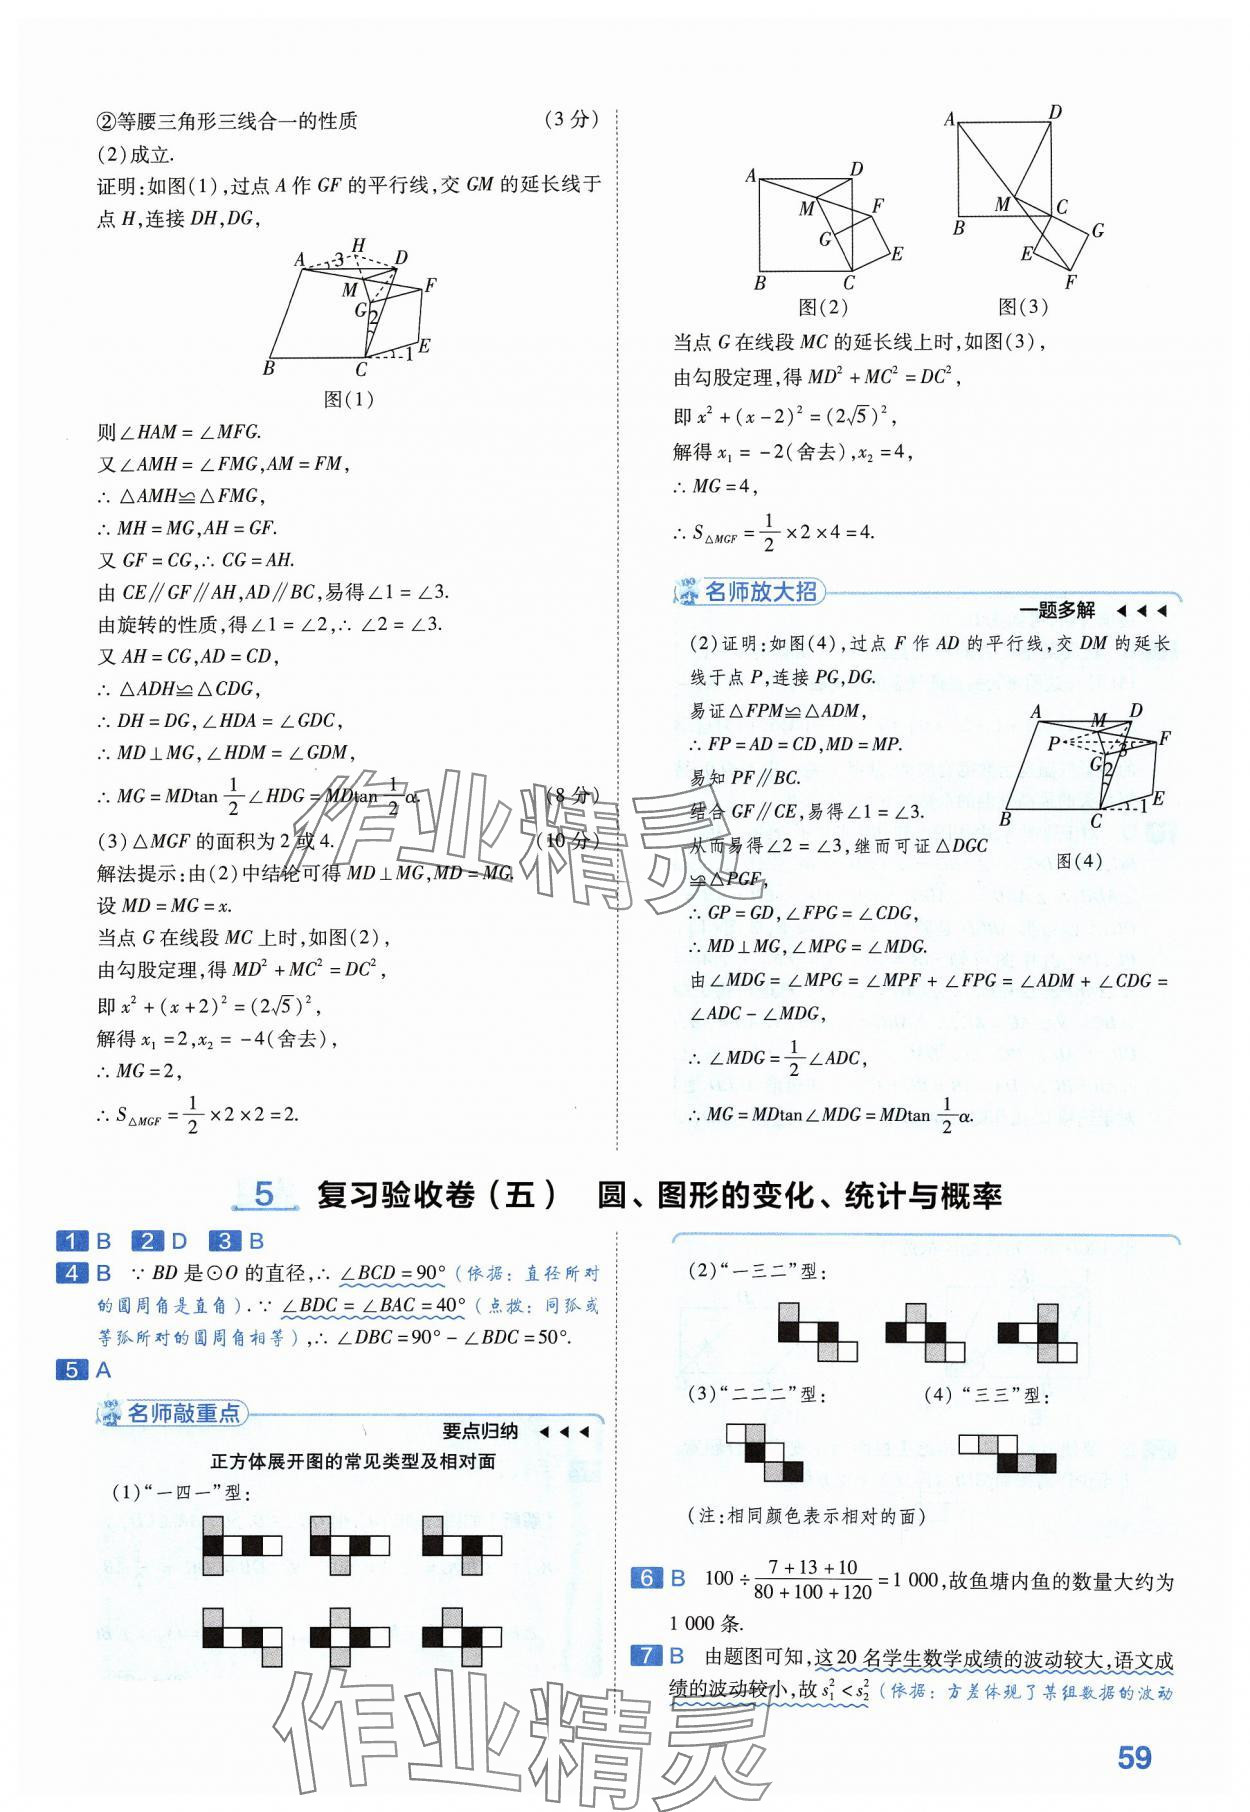 ②等腰三角形三线合一的性质 (3 分)
(2)成立.
证明:如图(1),过点 A 作 GF 的平行线,交 GM 的延长线于
点 H,连接 DH,DG,
H
A 3 D
M F
G
2
E
B C 1
图(1)
则∠HAM=∠MFG.
又∠AMH=∠FMG,AM=FM,
∴ △AMH≌△FMG,
∴ MH=MG,AH=GF.
又 GF=CG,∴ CG=AH.
由 CE∥GF∥AH,AD∥BC,易得∠1=∠3.
由旋转的性质,得∠1=∠2,∴ ∠2=∠3.
又 AH=CG,AD=CD,
∴ △ADH≌△CDG,
∴ DH=DG,∠HDA=∠GDC,
∴ MD⊥MG,∠HDM=∠GDM,
∴ MG=MDtan 1/2 ∠HDG=MDtan 1/2 α. (8 分)
(3)△MGF 的面积为 2 或 4. (10 分)
解法提示:由(2)中结论可得 MD⊥MG,MD=MG.
设 MD=MG=x.
当点 G 在线段 MC 上时,如图(2),
由勾股定理,得 MD²+MC²=DC²,
即 x²+(x+2)²=(2√5)²,
解得 x₁=2,x₂=-4(舍去),
∴ MG=2,
∴ S△MGF=1/2×2×2=2.
A D
M F
G
E
B C
图(2)
A D
M C
B G
E
F
图(3)
当点 G 在线段 MC 的延长线上时,如图(3),
由勾股定理,得 MD²+MC²=DC²,
即 x²+(x-2)²=(2√5)²,
解得 x₁=-2(舍去),x₂=4,
∴ MG=4,
∴ S△MGF=1/2×2×4=4.
名师放大招
一题多解 ◀ ◀ ◀
(2)证明:如图(4),过点 F 作 AD 的平行线,交 DM 的延长
线于点 P,连接 PG,DG.
易证△FPM≌△ADM,
∴ FP=AD=CD,MD=MP.
易知 PF∥BC.
结合 GF∥CE,易得∠1=∠3.
从而易得∠2=∠3,继而可证△DGC
≌△PGF,
∴ GP=GD,∠FPG=∠CDG,
∴ MD⊥MG,∠MPG=∠MDG.
由∠MDG=∠MPG=∠MPF+∠FPG=∠ADM+∠CDG=
∠ADC-∠MDG,
∴ ∠MDG=1/2∠ADC,
∴ MG=MDtan∠MDG=MDtan 1/2 α.
A M D
P 3 F
G
2
E
B C 1
图(4)
5 复习验收卷(五) 圆、图形的变化、统计与概率
1 B 2 D 3 B
4 B ∵ BD 是⊙O 的直径,∴ ∠BCD=90°(依据:直径所对
的圆周角是直角).∵ ∠BDC=∠BAC=40°(点拨:同弧或
等弧所对的圆周角相等),∴ ∠DBC=90°-∠BDC=50°.
5 A
名师敲重点
要点归纳 ◀ ◀ ◀
正方体展开图的常见类型及相对面
(1)“一四一”型:
(2)“一三二”型:
(3)“二二二”型: (4)“三三”型:
(注:相同颜色表示相对的面)
6 B 100÷(7+13+10)/(80+100+120)=1 000,故鱼塘内鱼的数量大约为
1 000 条.
7 B 由题图可知,这 20 名学生数学成绩的波动较大,语文成
绩的波动较小,故 s₁²<s₂²(依据:方差体现了某组数据的波动
59
作业精灵
作业精灵